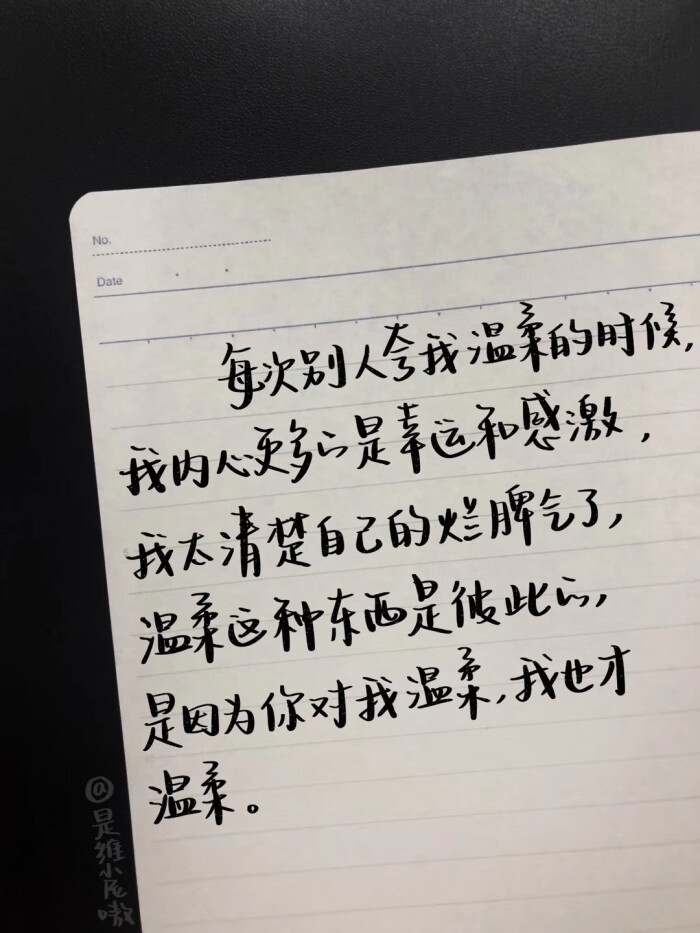 No.
Date
每次别人夸我温柔的时候,
我内心更多的是幸运和感激,
我太清楚自己的烂脾气了,
温柔这种东西是彼此的,
是因为你对我温柔,我也才
温柔。
@是维小尼嗷